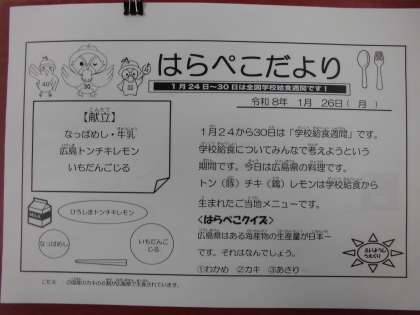 はらぺこだより
1月24日~30日は全国学校給食週間です!
令和8年 1月 26日(月)
【献立】
なっぱめし・牛乳
広島トンチキレモン
いもだんごじる
1月24から30日は「学校給食週間」です。
学校給食についてみんなで考えようという
期間です。今日は広島県の料理です。
トン(豚)チキ(鶏)レモンは学校給食から
生まれたご当地メニューです。
<はらぺこクイズ>
広島県はある海産物の生産量が日本一
です。それはなんでしょう。
①わかめ ②カキ ③あさり
ひろしまトンチキレモン
なっぱめし
いもだんご
じる
こたえ